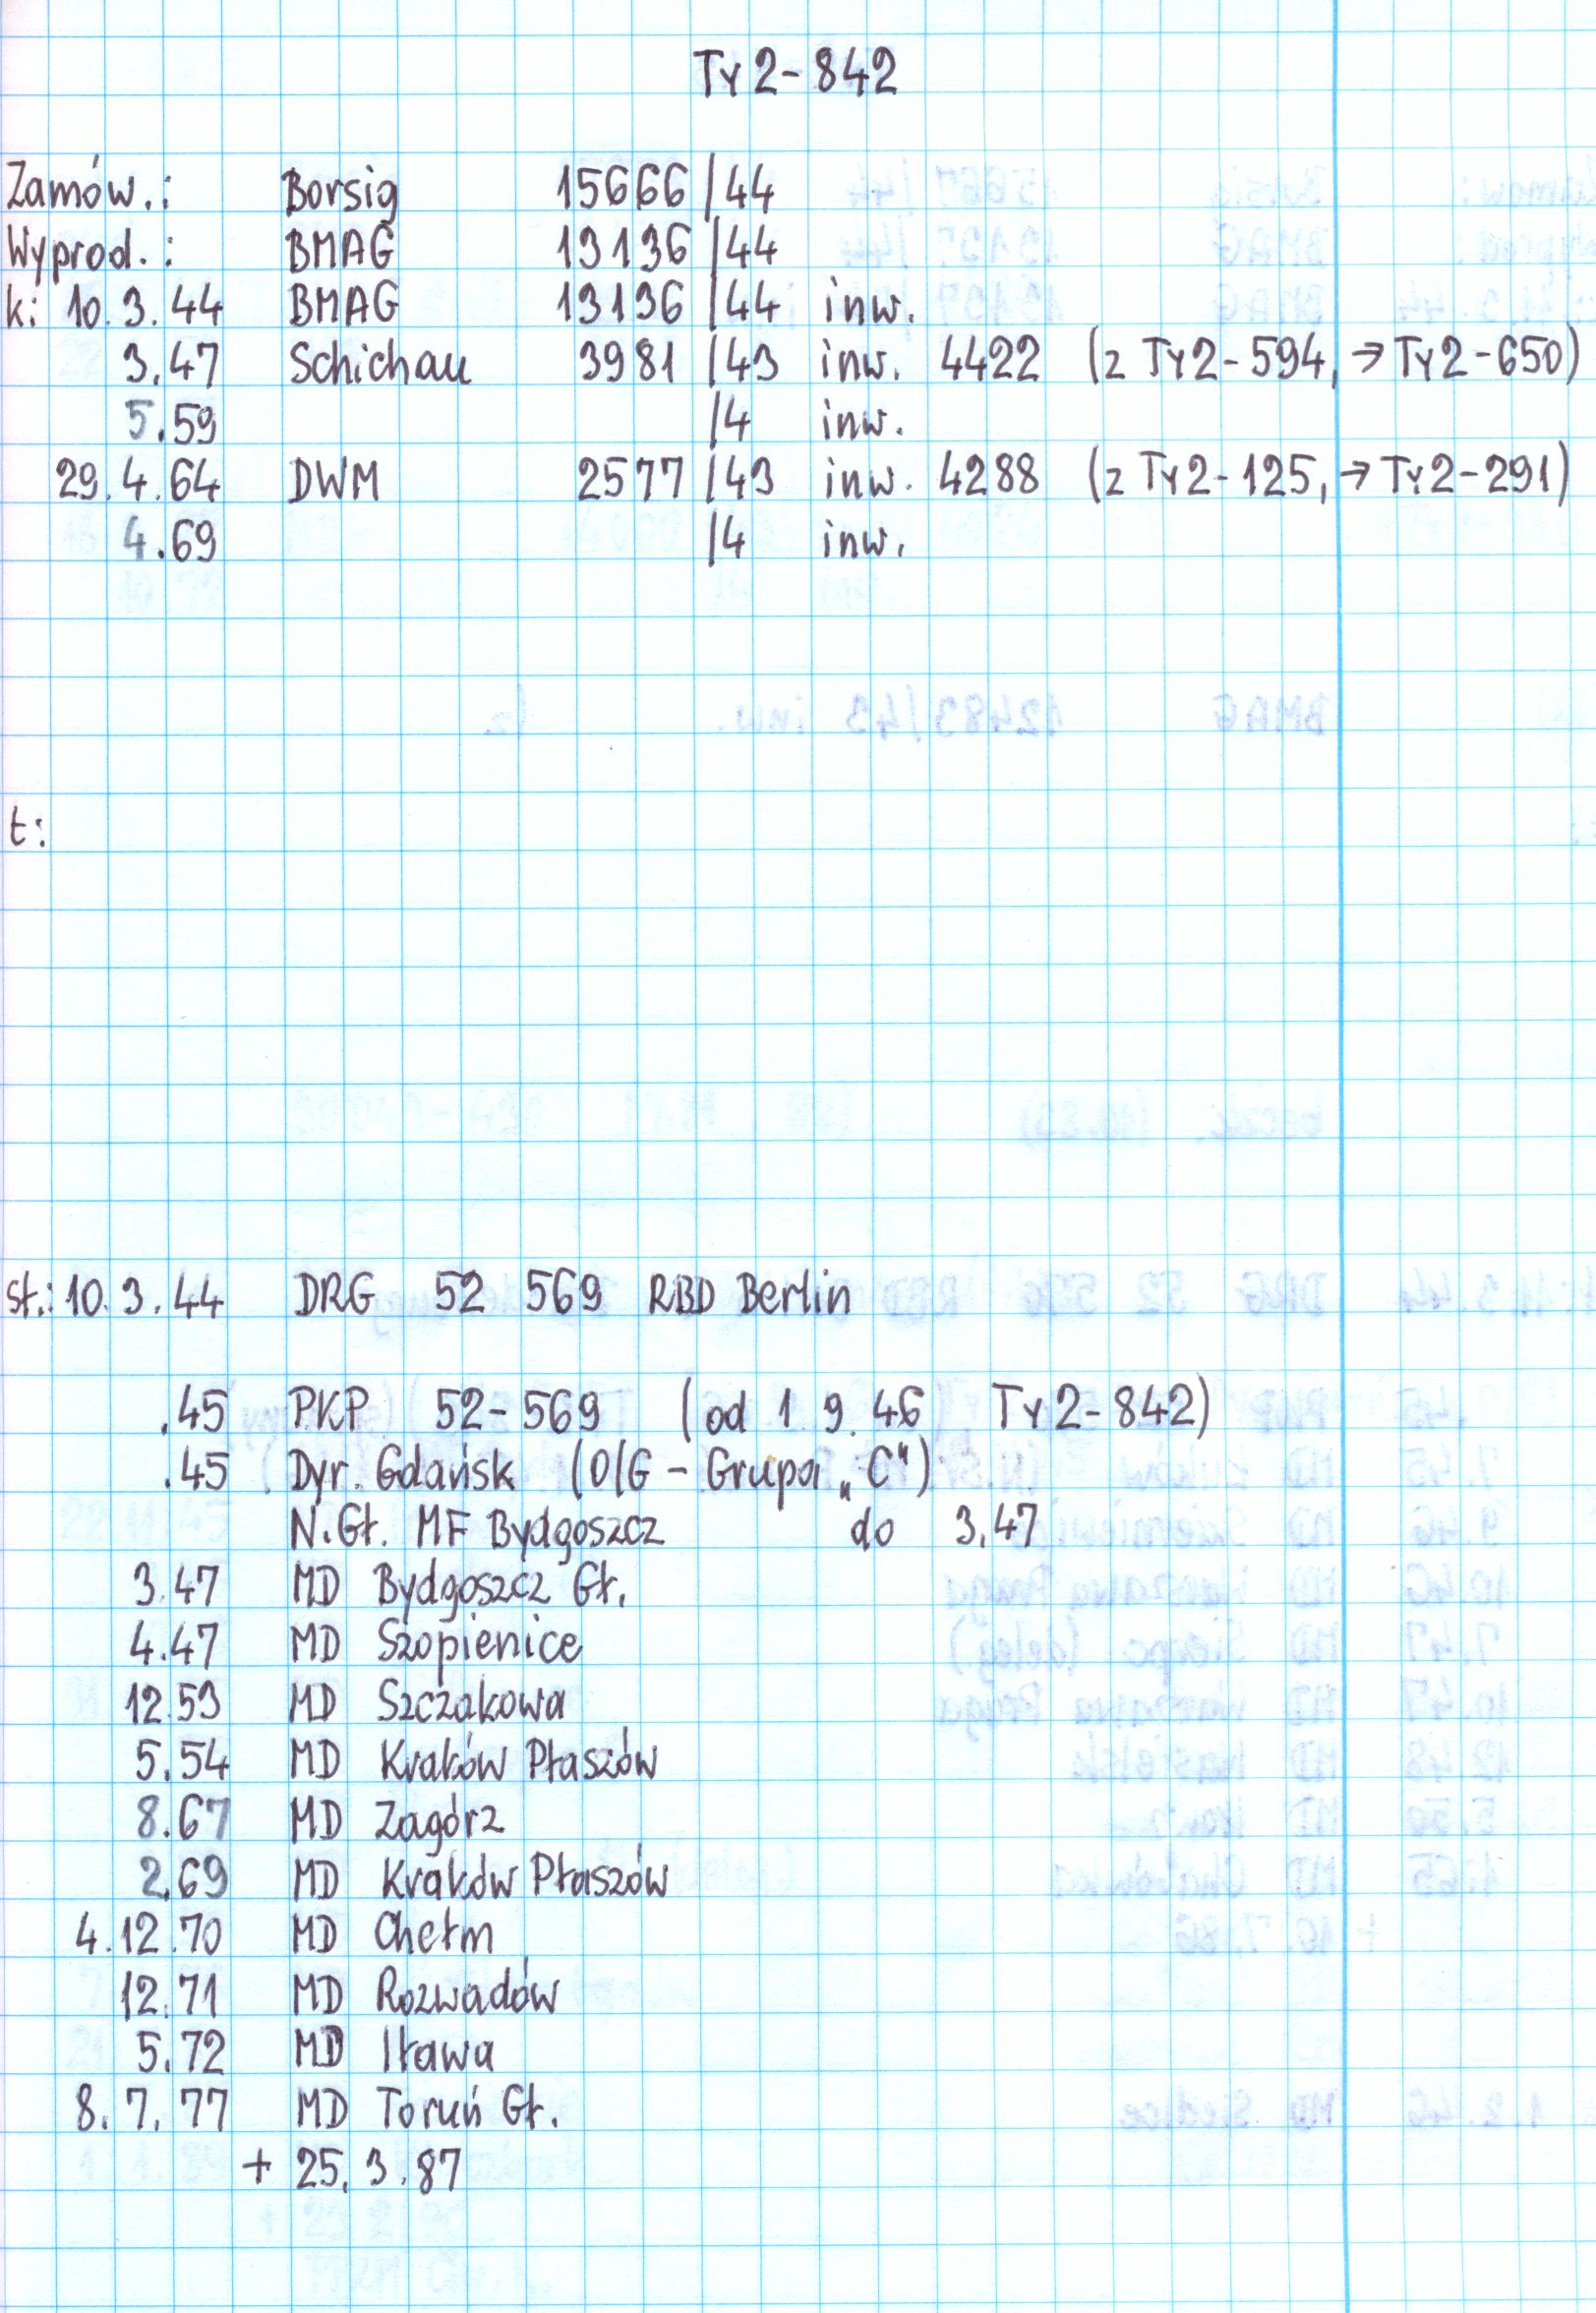 Ty2-842
Zamów.: Borsig 15666/44
Wyprod.: BMAG 13136/44
k: 10.3.44 BMAG 13136/44 inw.
3.47 Schichau 3981/43 inw. 4422 (z Ty2-594, → Ty2-650)
5.59 /4 inw.
29.4.64 DWM 2577/43 inw. 4288 (z Ty2-125, → Ty2-291)
4.69 /4 inw.
t:
st.: 10.3.44 DRG 52 569 RBD Berlin
.45 PKP 52-569 (od 1.9.46 Ty2-842)
.45 Dyr. Gdańsk (OlG - Grupa „C")
N.Gł. MF Bydgoszcz do 3.47
3.47 MD Bydgoszcz Gł.
4.47 MD Szopienice
12.53 MD Szczakowa
5.54 MD Kraków Płaszów
8.67 MD Zagórz
2.69 MD Kraków Płaszów
4.12.70 MD Chełm
12.71 MD Rozwadów
5.72 MD Iława
8.7.77 MD Toruń Gł.
+ 25.3.87